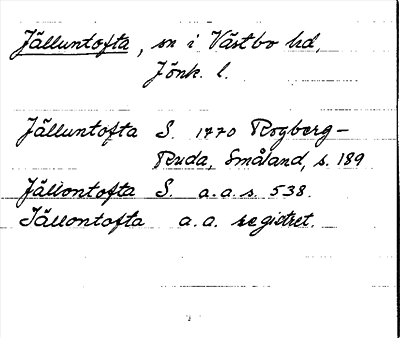 Jälluntofta, sn i Västbo hd,
Jönk. l.
Jälluntofta S. 1770 Rogberg-
Ruda, Småland, s. 189
Jällontofta S. a.a. s. 538.
Jällontofta a.a. registret.